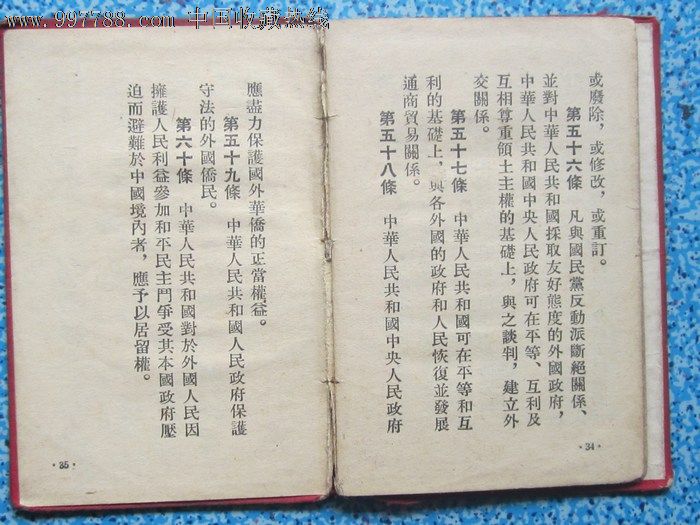 www.997788.com 中国收藏热线
或廢除，或修改，或重訂。
第五十六條　凡與國民黨反動派斷絕關係、
並對中華人民共和國採取友好態度的外國政府，
中華人民共和國中央人民政府可在平等、互利及
互相尊重領土主權的基礎上，與之談判，建立外
交關係。
第五十七條　中華人民共和國可在平等和互
利的基礎上，與各外國的政府和人民恢復並發展
通商貿易關係。
第五十八條　中華人民共和國中央人民政府
·34·
應盡力保護國外華僑的正當權益。
第五十九條　中華人民共和國人民政府保護
守法的外國僑民。
第六十條　中華人民共和國對於外國人民因
擁護人民利益參加和平民主鬥爭受其本國政府壓
迫而避難於中國境內者，應予以居留權。
·35·